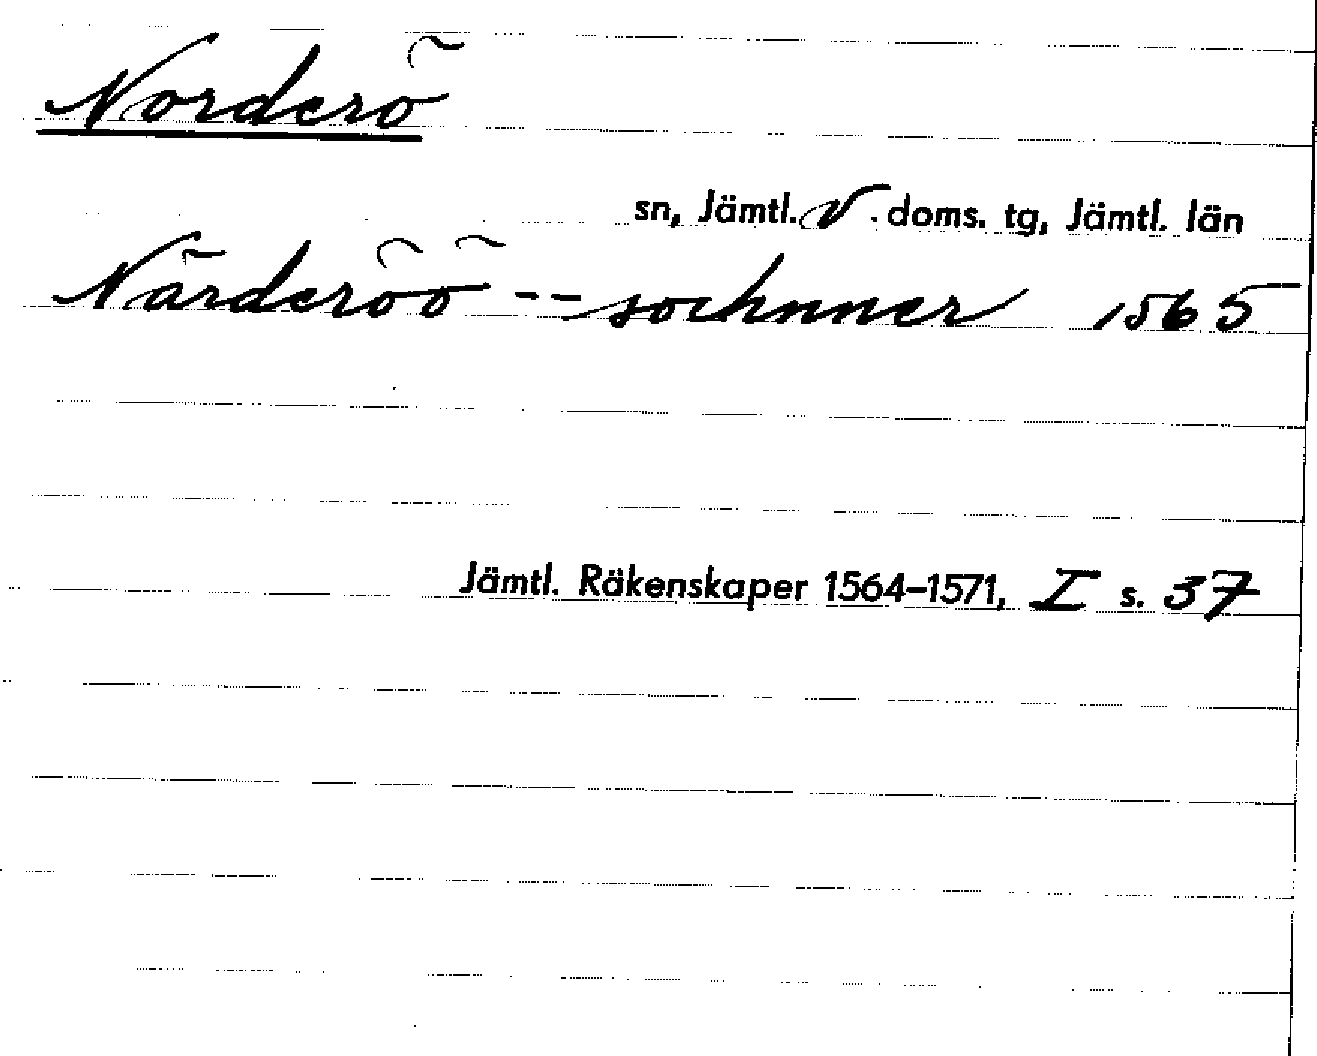 Norderö
sn, Jämtl. V. doms. tg, Jämtl. län
Närderöö -- sochnner 1565
Jämtl. Räkenskaper 1564–1571, I s. 37